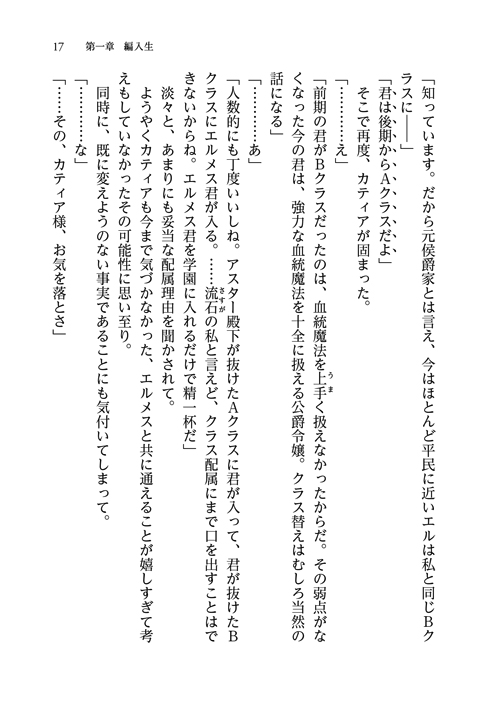 17　第一章　編入生
「知っています。だから元侯爵家とは言え、今はほとんど平民に近いエルは私と同じBク
ラスに――」
「君は後期からAクラスだよ」
そこで再度、カティアが固まった。
「…………え」
「前期の君がBクラスだったのは、血統魔法を上手く扱えなかったからだ。その弱点がな
くなった今の君は、強力な血統魔法を十全に扱える公爵令嬢。クラス替えはむしろ当然の
話になる」
「…………あ」
「人数的にも丁度いいしね。アスター殿下が抜けたAクラスに君が入って、君が抜けたB
クラスにエルメス君が入る。……流石の私と言えど、クラス配属にまで口を出すことはで
きないからね。エルメス君を学園に入れるだけで精一杯だ」
淡々と、あまりにも妥当な配属理由を聞かされて。
ようやくカティアも今まで気づかなかった、エルメスと共に通えることが嬉しすぎて考
えもしていなかったその可能性に思い至り。
同時に、既に変えようのない事実であることにも気付いてしまって。
「…………な」
「……その、カティア様、お気を落とさ」
うま
さすが